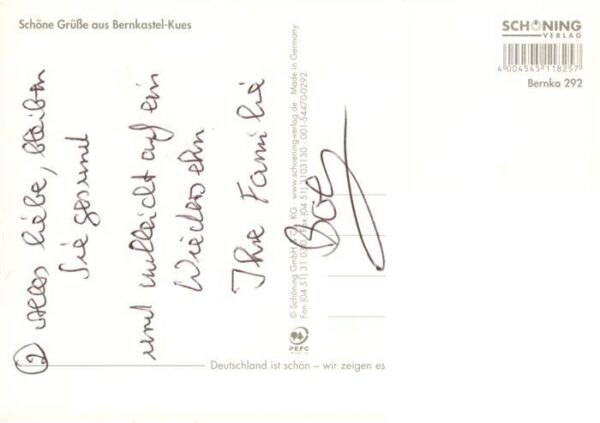 Schöne Grüße aus Bernkastel-Kues
SCHÖNING
VERLAG
4 004545 118257
Bernka 292
② Alles liebe, bleiben
Sie gesund
und vielleicht auf ein
Wiedersehn
Ihre Familie
© Schöning GmbH & Co. KG · www.schoening-verlag.de · Made in Germany
Fon (04 51) 31 03 Fax (04 51) 3103130 · 001-54470-0292
PEFC
Deutschland ist schön – wir zeigen es